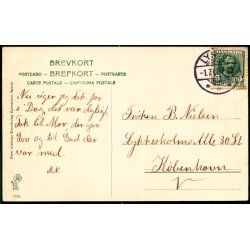 BREVKORT
POSTCARD - BREFKORT - POSTKARTE
CARTE POSTALE - CARTOLINA POSTALE
Nu siger jeg tak for
i Dag, det var dejligt
Tak til Mor der gav
Lov og til Gud der
var med
M.N.
Frøken B. Nielsen
Lykkesholms Alle 30 St
København
V